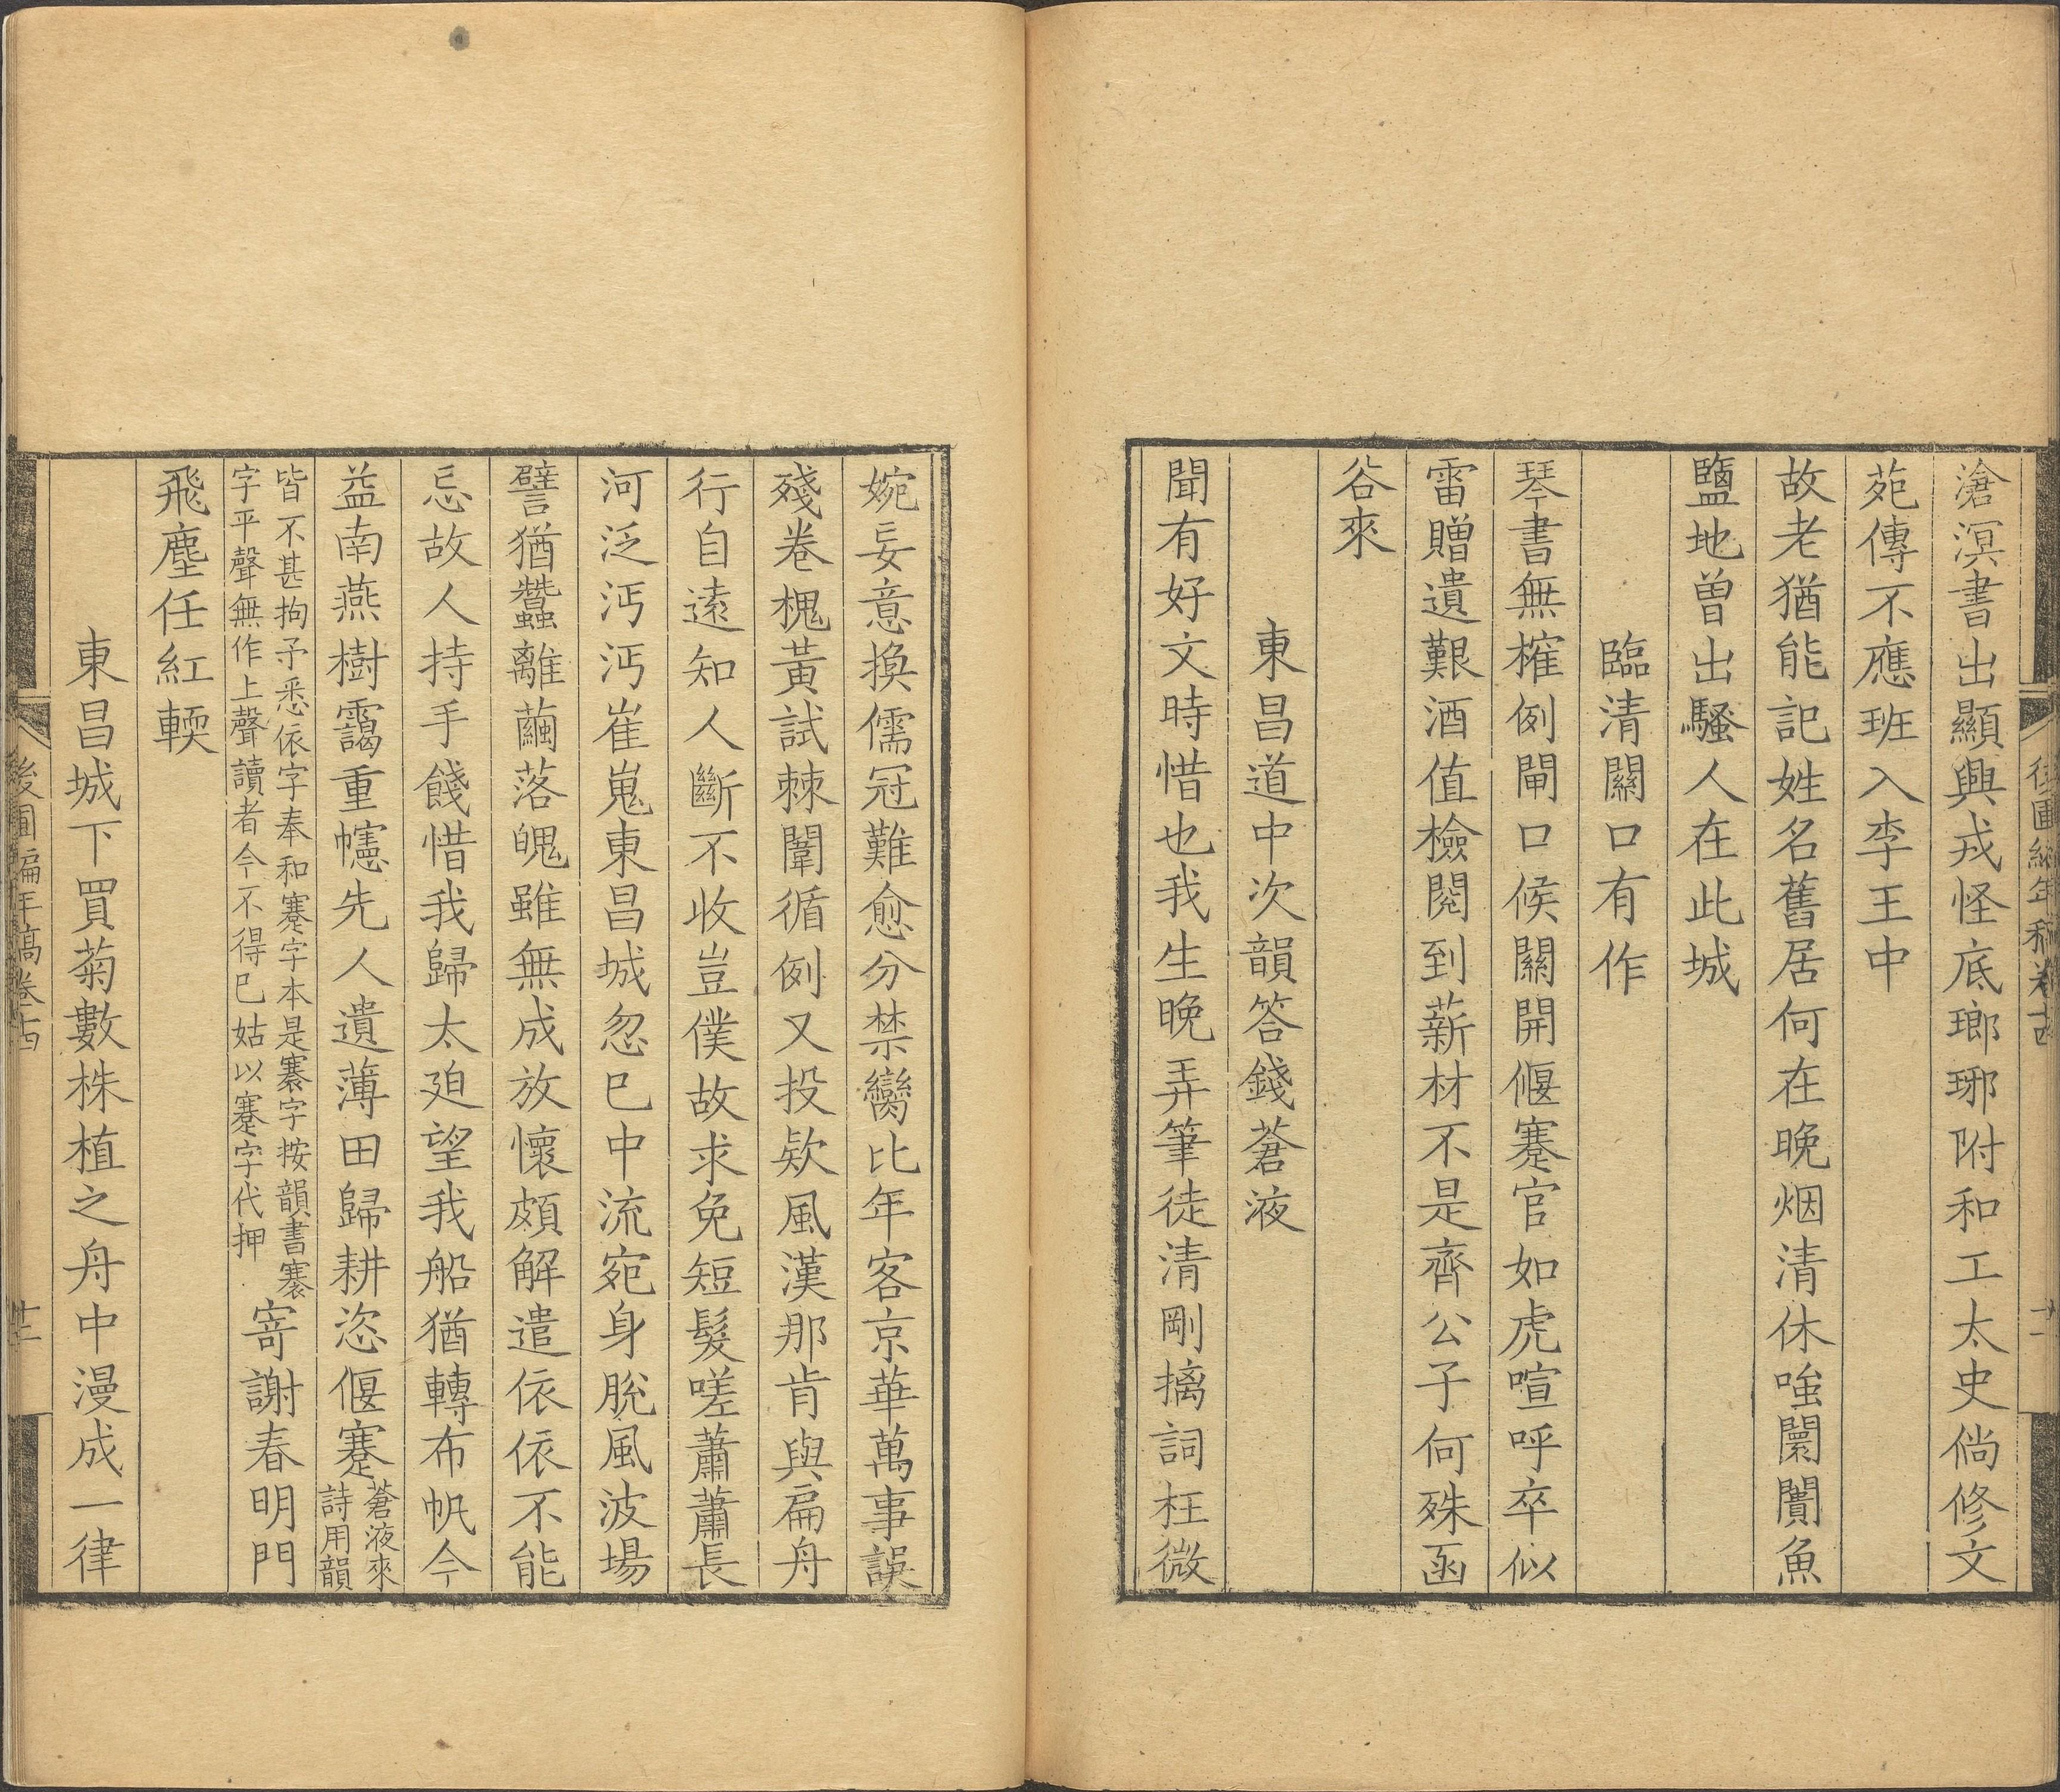 滄溟書出顯興戎怪底瑯琊附和工太史倘修文
苑傳不應班入李王中
故老猶能記姓名舊居何在晚烟清休嗤闤闠魚
鹽地曾出騷人在此城
臨清關口有作
琴書無榷例閘口候關開偃蹇官如虎喧呼卒似
雷贈遺艱酒值檢閱到薪材不是齊公子何殊函
谷來
東昌道中次韻答錢蒼液
聞有好文時惜也我生晚弄筆徒清剛摛詞枉微
婉妄意換儒冠難愈分禁臠比年客京華萬事誤
殘卷槐黃試棘闈循例又投欵風漢那肯與扁舟
行自遠知人斷不收豈僕故求免短髮嗟蕭蕭長
河泛沔沔崔嵬東昌城忽巳中流宛身脫風波場
譬猶蠶離繭落魄雖無成放懷頗解遣依依不能
忘故人持手餞惜我歸太廹望我船猶轉布帆今
益南燕樹靄重幰先人遺薄田歸耕恣偃蹇
蒼液來
詩用韻
皆不甚拘予悉依字奉和蹇字本是褰字按韻書褰
字平聲無作上聲讀者今不得巳姑以蹇字代押
寄謝春明門
飛塵任紅輭
東昌城下買菊數株植之舟中漫成一律
後圃編年稿卷十四